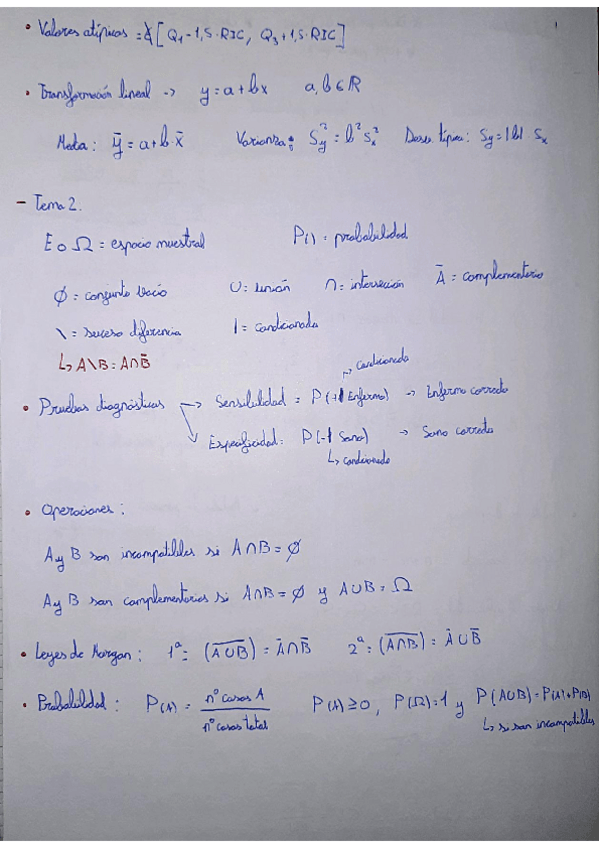 • Valores atípicos = ∉ [Q₁ - 1,5 · RIC, Q₃ + 1,5 · RIC]
• Transformación lineal -> y = a + bx a, b ∈ ℝ
Media: ȳ = a + b · x̄ Varianza: S²y = b² S²x Desv. típica: Sy = |b| · Sx
- Tema 2.
E o Ω = espacio muestral P() = probabilidad
∅ = conjunto vacío ∪ = unión ∩ = intersección Ā = complementario
\ = suceso diferencia | = condicionada
↳ A\B = A∩B̄
↳ condicionada
• Pruebas diagnósticas -> Sensibilidad = P(+|Enfermo) -> Enfermo correcto
↘ Especificidad: P(-|Sano) -> Sano correcto
↳ condicionada
• Operaciones:
A y B son incompatibles si A∩B = ∅
A y B son complementarios si A∩B = ∅ y A∪B = Ω
• Leyes de Morgan: 1ª: (A∪B)‾ = Ā∩B̄ 2ª: (A∩B)‾ = Ā∪B̄
• Probabilidad: P(A) = nº casos A / nº casos total P(A) ≥ 0, P(Ω) = 1 y P(A∪B) = P(A) + P(B)
↳ si son incompatibles